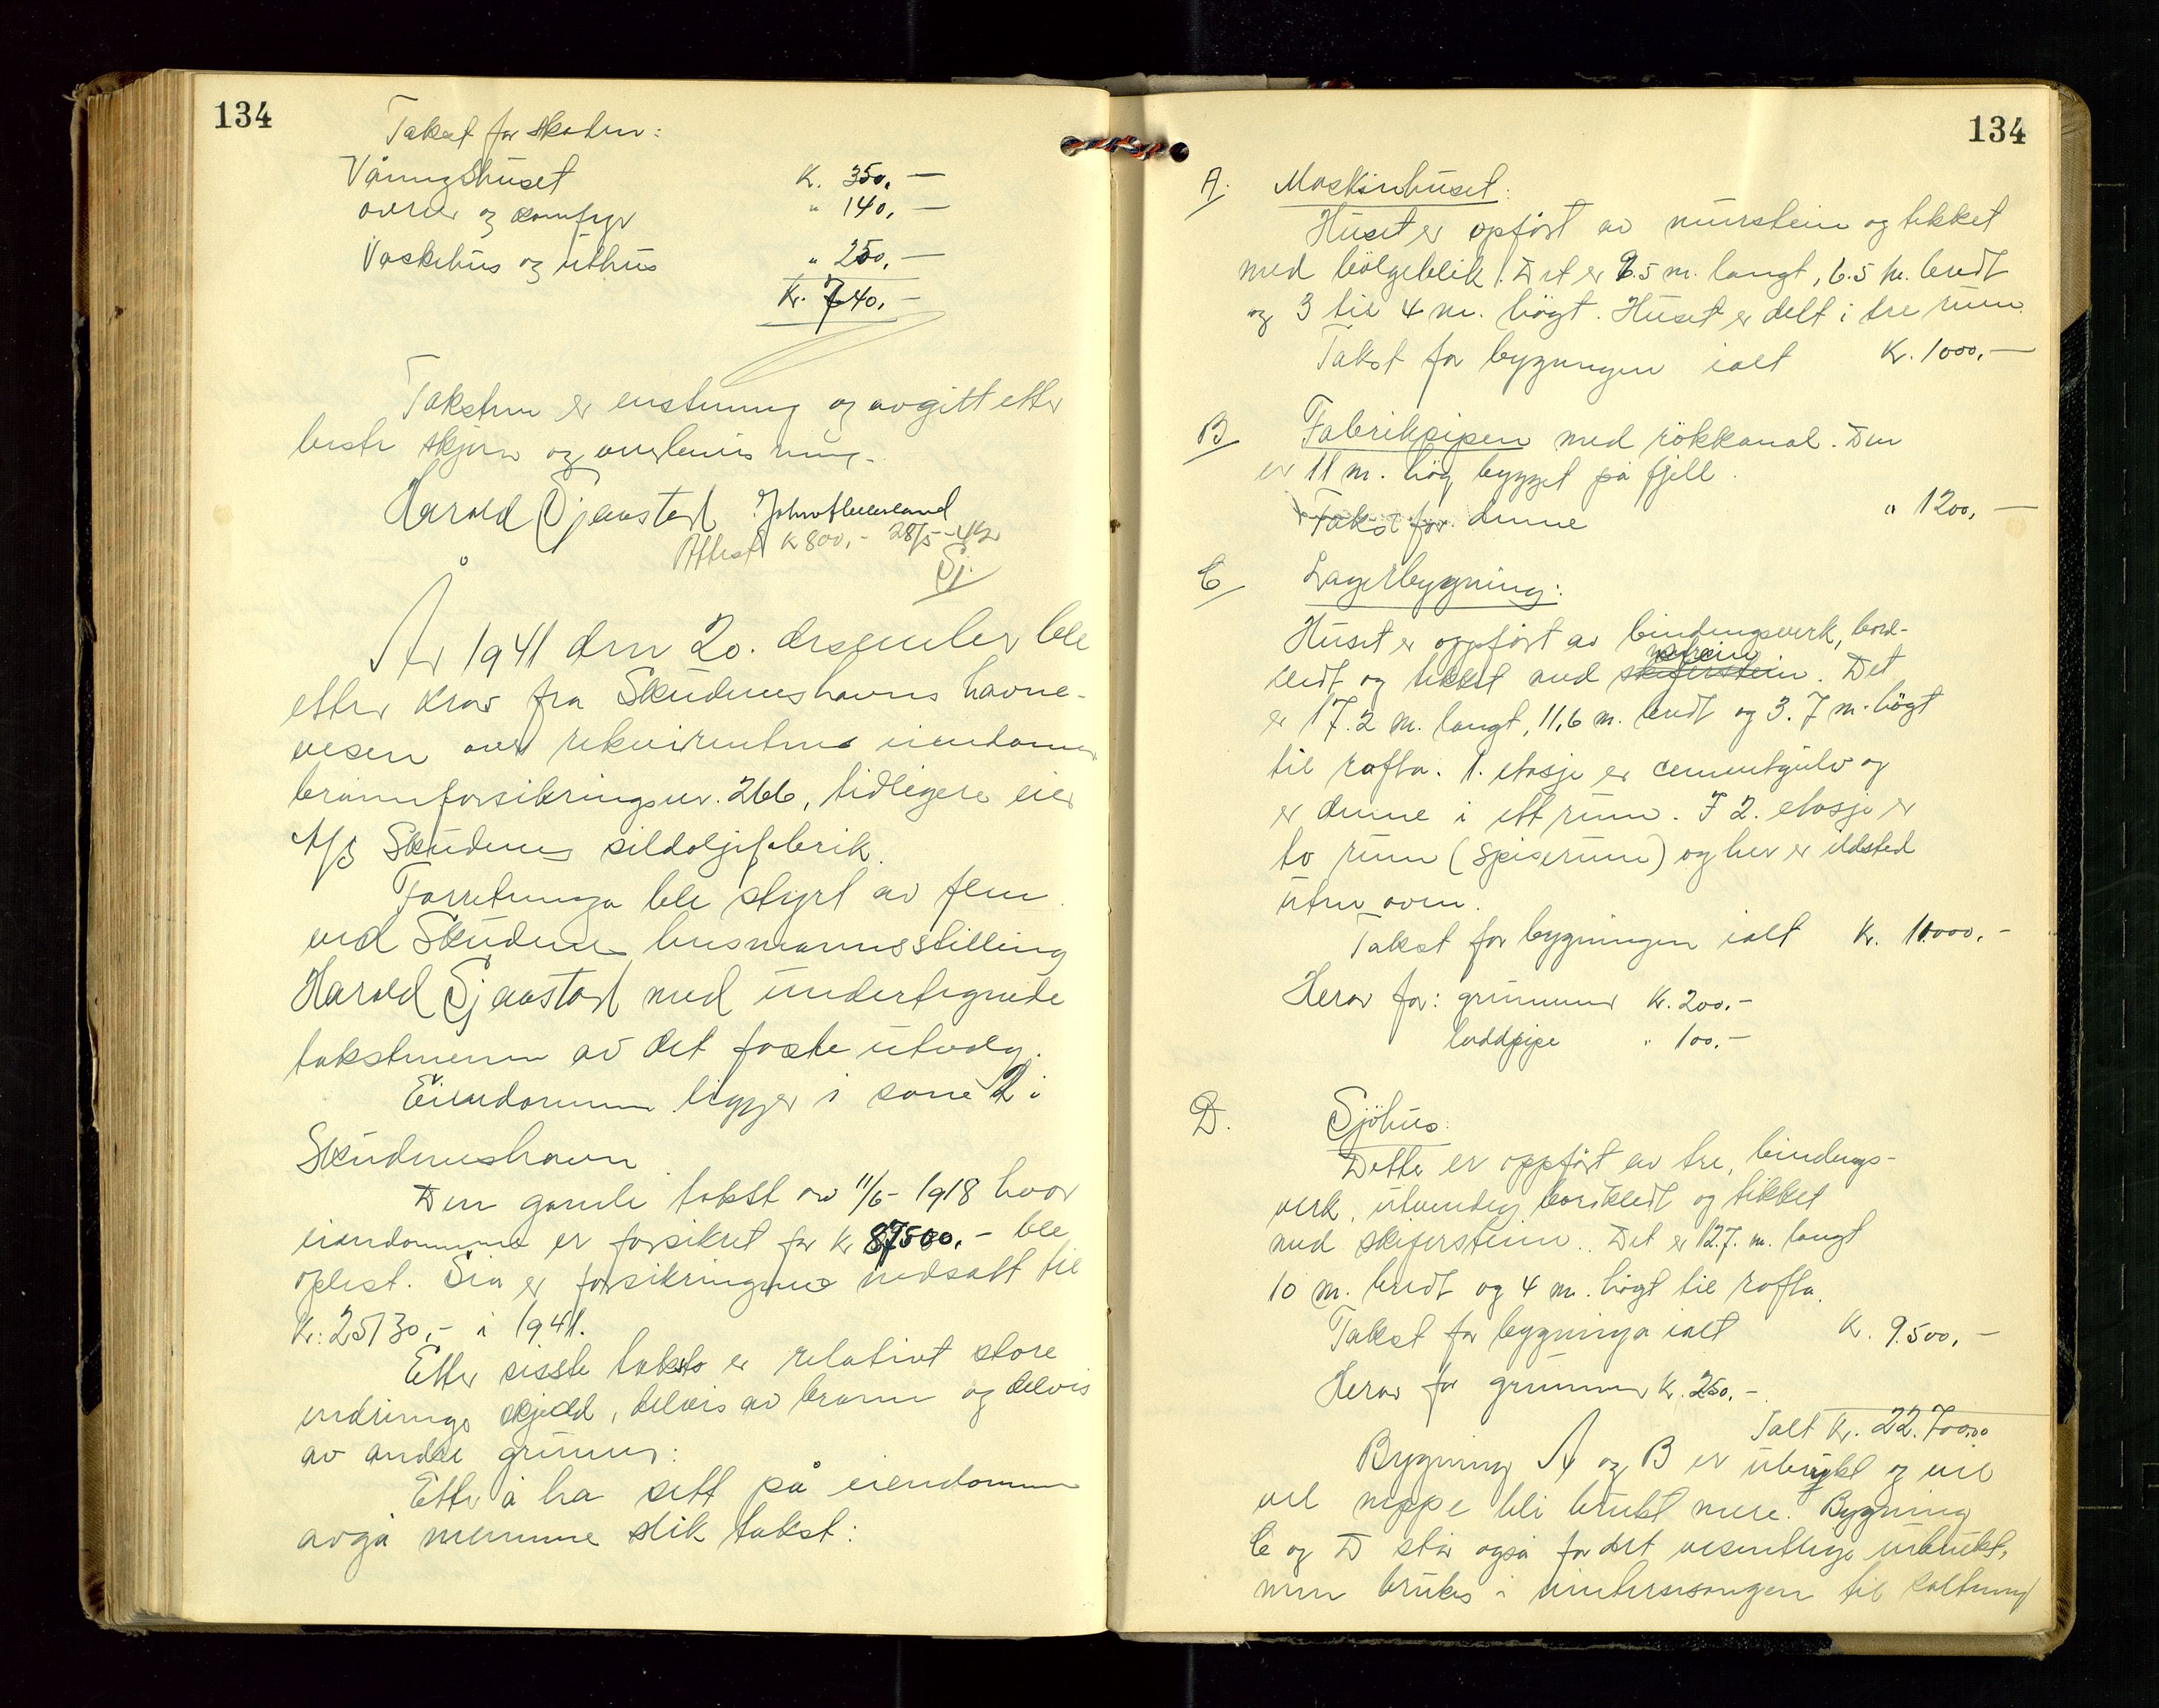 134
Takst for skaden:
Våningshuset K. 350,—
ovner og komfyr " 140,—
Vaskehus og uthus " 250,—
Kr. 740,-
Taksten er enstemmig og avgitt etter
beste skjønn og overbevisning.
Harald Sjaastad John Heveland
Attest K 800,- 28/5-42
Sj.
År 1941 den 20. desember ble
etter krav fra Skudeneshavns havne-
vesen over rekvirentens eiendommer
brannforsikringsnr. 266, tidligere eier
A/S Skudenes sildoljefabrik.
Forretninga ble styrt av fem.
ved Skudenes lensmannsstilling
Harald Sjaastad med undertegnede
takstmenn av det faste utvalg.
Eiendommen ligger i sone 2 i
Skudeneshavn
Den gamle takst av 11/6-1918 hvor
eiendommene er forsikret for Kr 87500,- ble
oplest. Sia er forsikringene nedsatt til
Kr: 25130,- i 1941.
Etter siste takst er relativt store
endringer skjedd, delvis av brann og delvis
av andre grunner:
Etter å ha sett på eiendommen
avga mennene slik takst:
134
A. Maskinhuset:
Huset er opført av murstein og tekket
med bølgeblik. Det er 9.5 m. langt, 6.5 m. bredt
og 3 til 4 m. høgt. Huset er delt i tre rum.
Takst for bygningen ialt Kr. 1000,—
B/ Fabrikpipen med rökkanal. Den
er 11 m. høg bygget på fjell.
Takst for denne " 1200,—
C/ Lagerbygning:
Huset er oppført av bindingsverk, bord-
kledt og tekket med skiferstein. Det
er 17.2 m. langt, 11,6 m. bredt og 3.7 m. högt
til rafta. 1. etasje er cementgulv og
er denne i ett rum. I 2. etasje er
to rum (spiserum) og her er ildsted
uten ovn.
Takst for bygningen ialt Kr. 11.000,-
Herav for: grunnmur Kr. 200,-
loddpipe " 100,-
D. Sjöhus:
Dette er oppført av tre, bindings-
verk, utvendig bordkledt og tekket
med skiferstein. Det er 12.7. m. langt
10 m. bredt og 4 m. högt til rafta.
Takst for bygninga ialt K. 9.500,—
Herav for grunnmur Kr. 250,-
Ialt Kr. 22.700,00
Bygning A og B er ubrukt og vil
vel neppe bli brukt mere. Bygning
C og D står også for det vesentlige ubrukt,
men brukes i vintersesongen til saltning